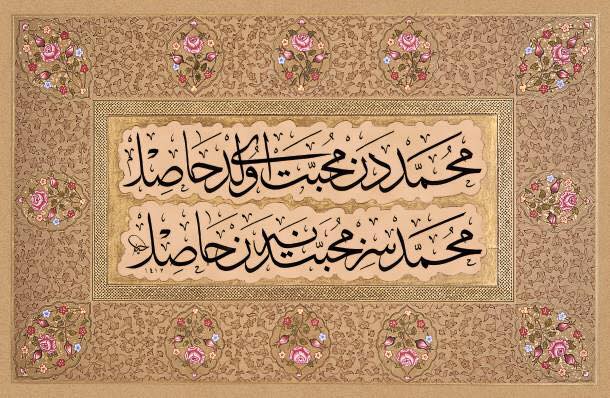 مُحَمَّددَنْ مُحَبَّتْ اولدى حَاصِلْ
مُحَمَّدسِزْ مُحَبَّتدَنْ نه حَاصِلْ